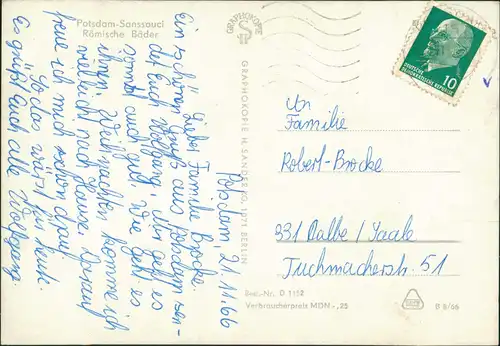 Potsdam-Sanssouci
Römische Bäder
Potsdam, 21.11.66
Liebe Familie Brocke.
Ein schönen Gruß aus Potsdam sen-
det Euch Wolfgang, mir geht es
sonst auch gut. Wie geht es
ihnen. Weihnachten komme ich
vielleicht nach Hause. Darauf
freue ich mich schon drauf
So das wär's für heute.
Es grüßt Euch alle Wolfgang
GRAPHOKOPIE
GRAPHOKOPIE H. SANDER KG, 1071 BERLIN
DEUTSCHE
DEMOKRATISCHE REPUBLIK
10
An
Familie
Robert-Brocke
331 Calbe / Saale
Tuchmacherstr. 51
Best.-Nr. D 1152
Verbraucherpreis MDN -,25
B 8/66